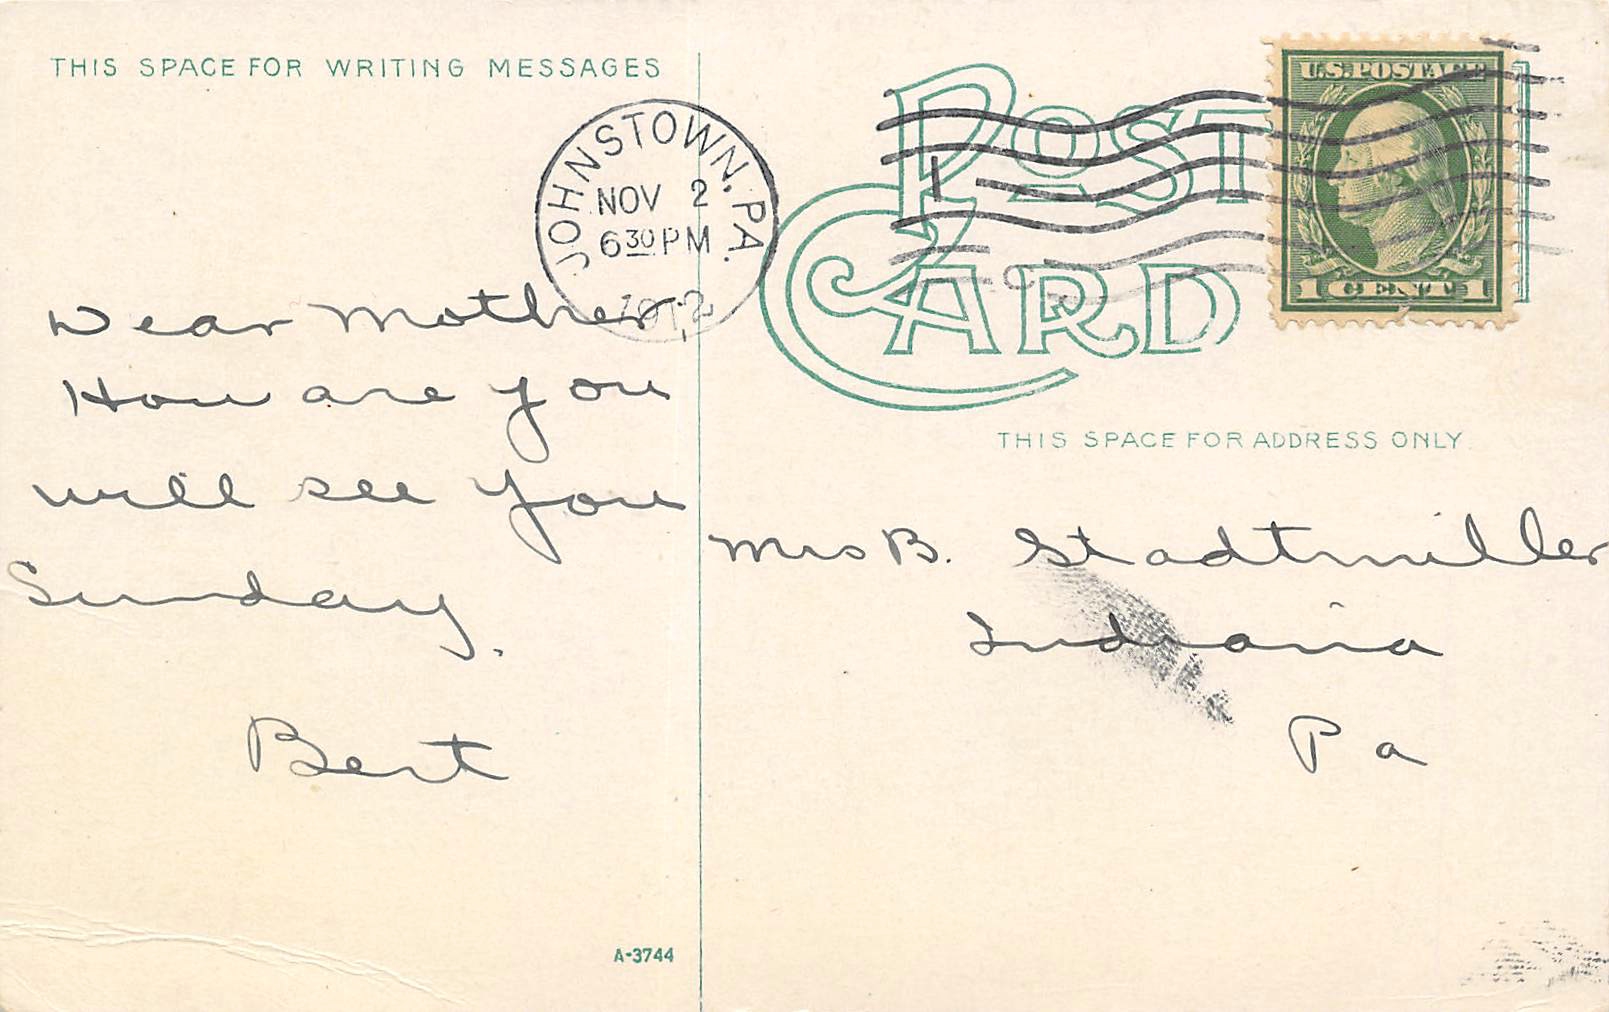 THIS SPACE FOR WRITING MESSAGES
JOHNSTOWN, PA.
NOV 2
6 30 PM
1912
Dear Mother
How are you
will see you
Sunday.
Bert
A-3744
POST CARD
U.S. POSTAGE
1 CENT 1
THIS SPACE FOR ADDRESS ONLY.
Mrs B. Stadtmiller
Indiana
Pa